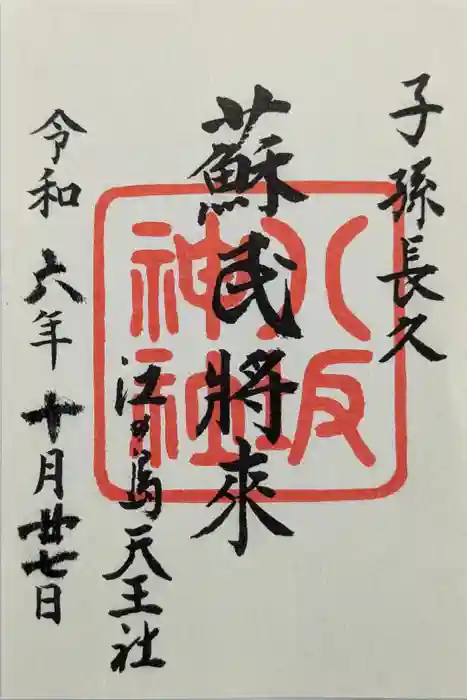 子孫長久
蘇民將來
江ノ島天王社
令和六年十月廿七日
八坂
神社